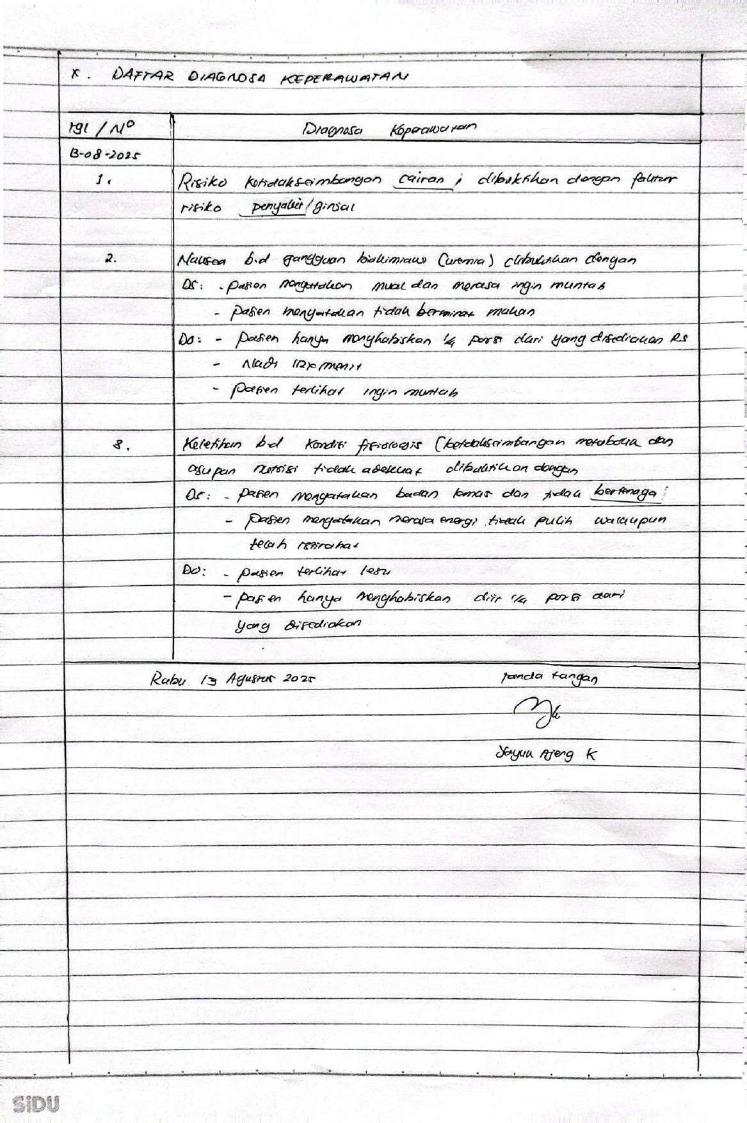 X. DAFTAR DIAGNOSA KEPERAWATAN
Tgl / No Diagnosa Keperawatan
13-08-2025
1. Risiko ketidakseimbangan cairan ; dibuktikan dengan faktor
risiko penyakit/ginjal
2. Nausea b.d gangguan biokimiawi (uremia) dibuktikan dengan
DS: - pasien mengatakan mual dan merasa ingin muntah
- pasien mengatakan tidak berminat makan
DO: - pasien hanya menghabiskan 1/4 porsi dari yang disediakan RS
- Nadi 112x/menit
- pasien terlihat ingin muntah
3. Keletihan b.d kondisi fisiologis (ketidakseimbangan metabolik dan
asupan nutrisi tidak adekuat dibuktikan dengan
DS: - pasien mengatakan badan lemas dan tidak bertenaga
- pasien mengatakan merasa energi tidak pulih walaupun
telah istirahat
DO: - pasien terlihat lesu
- pasien hanya menghabiskan diit 1/4 porsi dari
yang disediakan
Rabu 13 Agustus 2025 Tanda tangan
Ajeng K
SiDU